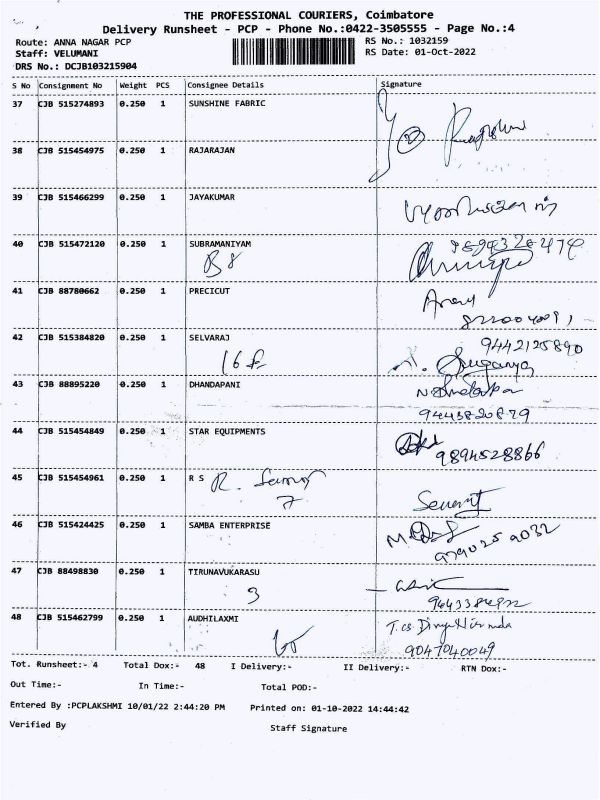 THE PROFESSIONAL COURIERS, Coimbatore
Delivery Runsheet - PCP - Phone No.:0422-3505555 - Page No.:4
Route: ANNA NAGAR PCP
RS No.: 1032159
Staff: VELUMANI
RS Date: 01-Oct-2022
DRS No.: DCJB103215904
S No Consignment No Weight PCS Consignee Details Signature
37 CJB 515274893 0.250 1 SUNSHINE FABRIC
38 CJB 515454975 0.250 1 RAJARAJAN
39 CJB 515466299 0.250 1 JAYAKUMAR
40 CJB 515472120 0.250 1 SUBRAMANIYAM
B 8
41 CJB 88780662 0.250 1 PRECICUT
42 CJB 515384820 0.250 1 SELVARAJ
9442125890
43 CJB 88895220 0.250 1 DHANDAPANI
44 CJB 515454849 0.250 1 STAR EQUIPMENTS
9894528866
45 CJB 515454961 0.250 1 R S
7
46 CJB 515424425 0.250 1 SAMBA ENTERPRISE
47 CJB 88498830 0.250 1 TIRUNAVUKARASU
3
48 CJB 515462799 0.250 1 AUDHILAXMI
9047040049
Tot. Runsheet:- 4 Total Dox:- 48 I Delivery:- II Delivery:- RTN Dox:-
Out Time:- In Time:- Total POD:-
Entered By :PCPLAKSHMI 10/01/22 2:44:20 PM Printed on: 01-10-2022 14:44:42
Verified By Staff Signature